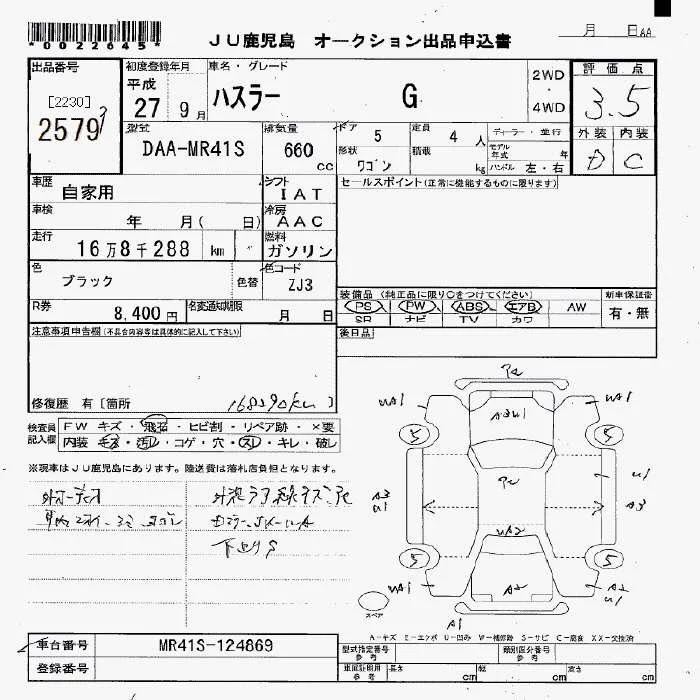 *0022645*
JU鹿児島 オークション出品申込書
月 日
出品番号
[2230]
2579
初度登録年月
平成
27 9月
車名・グレード
ハスラー G
2WD
4WD
評価点
3.5
型式
DAA-MR41S
排気量
660
cc
ドア 5
形状 ワゴン
定員 4 人
積載 kg
ディーラー・並行
モデル年式 年
ハンドル 左・右
外装 内装
D C
車歴
自家用
シフト
IAT
セールスポイント(正常に機能するものに限ります)
車検
年 月( 日)
冷房
AAC
走行
16万8千288 km
燃料
ガソリン
色
ブラック
色替
色コード
ZJ3
装備品(純正品に限り○をつけてください)
新車保証書
PS PW ABS エアB AW
有・無
SR ナビ TV カワ
R券
8,400円
名変通知期限
月 日
後日品
注意事項申告欄(不具合内容等は具体的に記入して下さい)
修復歴 有[箇所
168290km
]
検査員
記入欄
FW キズ・飛石・ヒビ割・リペア跡・×要
内装 キズ・汚れ・コゲ・穴・スレ・キレ・破レ
※現車はJU鹿児島にあります。陸送費は落札店負担となります。
下廻りS
A3U1
UA1
UA1
5
5
A3
U1
U1
A3
UA2
5
5
UA1
A2
A2
U1
A1
スペア
A-キズ E-エクボ U-凹み W-補修跡 S-サビ C-腐食 XX-交換済
車台番号
MR41S-124869
型式指定番号
参考
類別区分番号
参考
登録番号
車庫証明用
参考
長さ cm
幅 cm
高さ cm